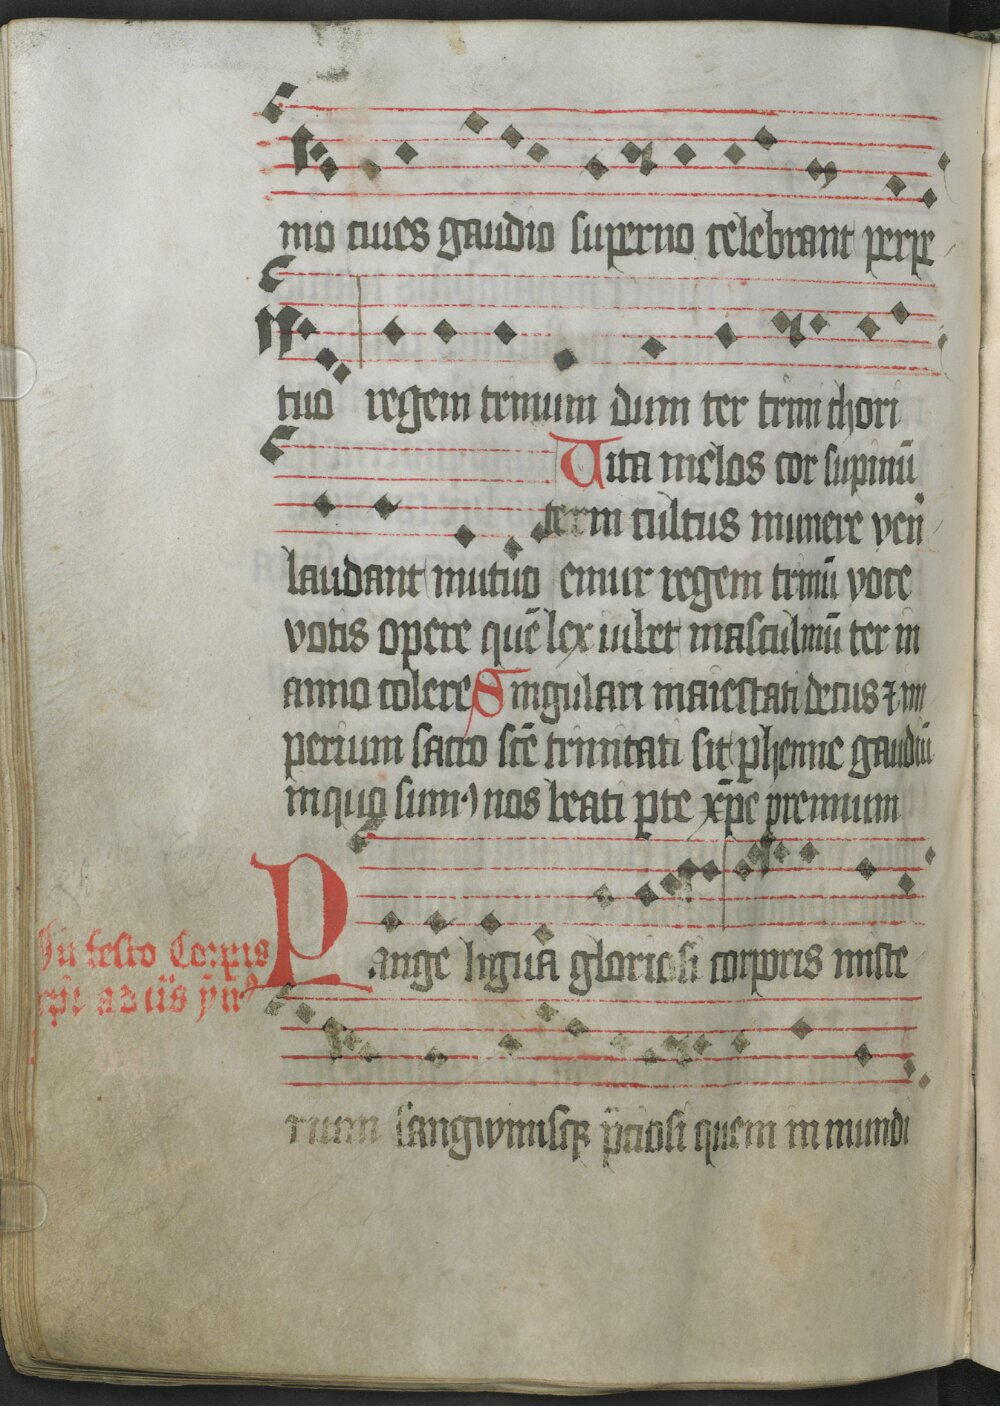 mo ciues gaudio superno celebrant perpe
tuo regem trinum dum ter trini chori
Vita melos cor supinū
term cultus munere ven
laudant mutuo emur regem trinū voce
votis opere quē lex iubet masculinū ter in
anno colere Singulari maiestati decus ⁊ im
perium sacro scē trinitati sit phenne gaudiū
in quo sum nos beati pte xp̄e premium
Pange ligua gloriosi corporis miste
In festo Corpis
xp̄i ad iis ymꝰ
rium sangwinisqꝫ p̄ciosi quem in mundi